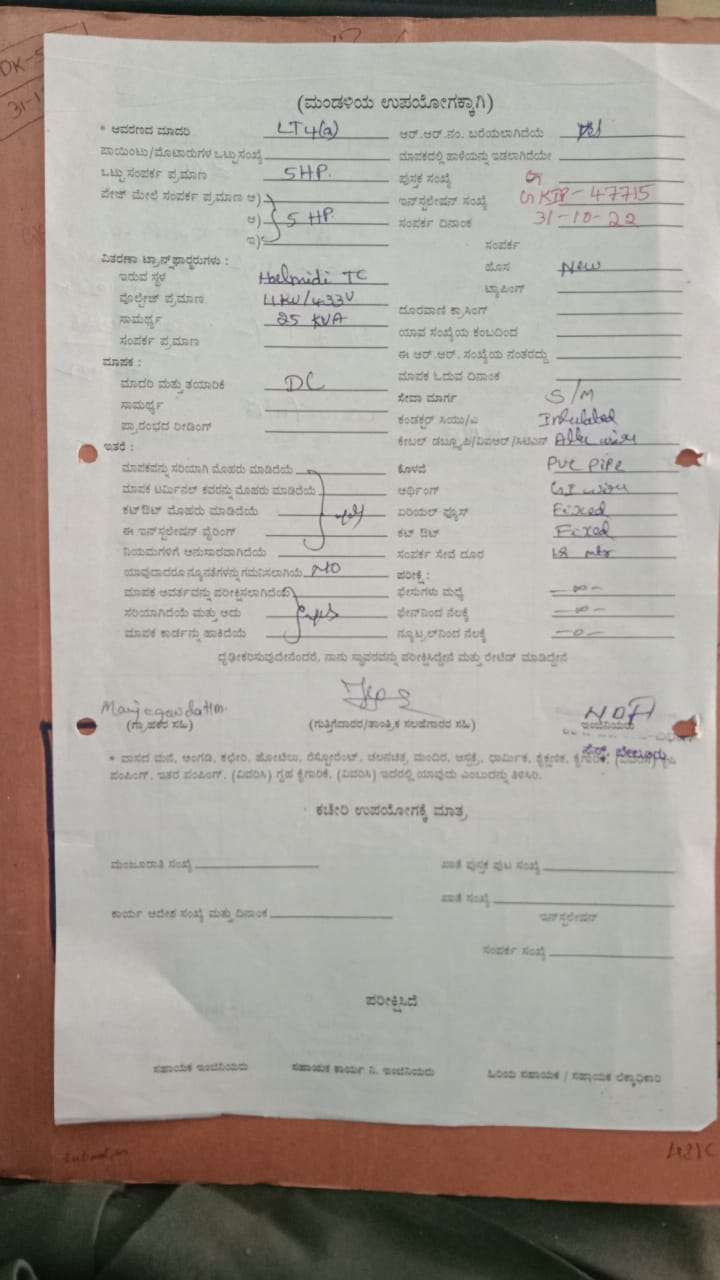 (ಮಂಡಳಿಯ ಉಪಯೋಗಕ್ಕಾಗಿ)
* ಆವರಣದ ಮಾದರಿ LT4(a) ಆರ್.ಆರ್.ನಂ. ಬರೆಯಲಾಗಿದೆಯೆ yes
ಪಾಯಿಂಟು/ಮೋಟಾರುಗಳ ಒಟ್ಟು ಸಂಖ್ಯೆ ಮಾಪಕದಲ್ಲಿ ಹಾಳೆಯನ್ನು ಇಡಲಾಗಿದೆಯೇ
ಒಟ್ಟು ಸಂಪರ್ಕ ಪ್ರಮಾಣ 5HP. ಪುಸ್ತಕ ಸಂಖ್ಯೆ
ಪೇಜ್ ಮೇಲೆ ಸಂಪರ್ಕ ಪ್ರಮಾಣ ಅ) ಇನ್‌ಸ್ಟಲೇಷನ್ ಸಂಖ್ಯೆ GKIP-47715
ಆ) 5 HP. ಸಂಪರ್ಕ ದಿನಾಂಕ 31-10-22
ಇ) ಸಂಪರ್ಕ
ವಿತರಣಾ ಟ್ರಾನ್ಸ್‌ಫಾರ್ಮರುಗಳು : ಹೊಸ New
ಇರುವ ಸ್ಥಳ Halmidi TC ಟ್ಯಾಪಿಂಗ್
ವೋಲ್ಟೇಜ್ ಪ್ರಮಾಣ 11KV/433V ದೂರವಾಣಿ ಕ್ರಾಸಿಂಗ್
ಸಾಮರ್ಥ್ಯ 25 KVA ಯಾವ ಸಂಖ್ಯೆಯ ಕಂಬದಿಂದ
ಸಂಪರ್ಕ ಪ್ರಮಾಣ ಈ ಆರ್.ಆರ್. ಸಂಖ್ಯೆಯ ನಂತರದ್ದು
ಮಾಪಕ : ಮಾಪಕ ಓದುವ ದಿನಾಂಕ
ಮಾದರಿ ಮತ್ತು ತಯಾರಿಕೆ DC ಸೇವಾ ಮಾರ್ಗ S/M
ಸಾಮರ್ಥ್ಯ ಕಂಡಕ್ಟರ್ ಸಿಯು/ಎ Insulated
ಪ್ರಾರಂಭದ ರೀಡಿಂಗ್ ಕೇಬಲ್ ಡಬ್ಲ್ಯೂಪಿ/ವಿಐಆರ್/ಸಿಟಿಎಸ್ wire
ಇತರೆ : ಕೊಳವೆ PVC PIPE
ಮಾಪಕವನ್ನು ಸರಿಯಾಗಿ ಮೊಹರು ಮಾಡಿದೆಯೆ ಆರ್ಥಿಂಗ್ GI wire
ಮಾಪಕ ಟರ್ಮಿನಲ್ ಕವರನ್ನು ಮೊಹರು ಮಾಡಿದೆಯೆ
ಕಟ್‌ಔಟ್ ಮೊಹರು ಮಾಡಿದೆಯೆ yes ಏರಿಯಲ್ ಫ್ಯೂಸ್ Fixed
ಈ ಇನ್‌ಸ್ಟಲೇಷನ್ ವೈರಿಂಗ್ ಕಟ್ ಔಟ್ Fixed
ನಿಯಮಗಳಿಗೆ ಅನುಸಾರವಾಗಿದೆಯೆ ಸಂಪರ್ಕ ಸೇವೆ ದೂರ 18 mtr
ಯಾವುದಾದರೂ ನ್ಯೂನತೆಗಳನ್ನು ಗಮನಿಸಲಾಗಿಯೆ NO ಪರೀಕ್ಷೆ :
ಮಾಪಕ ಆವರ್ತವನ್ನು ಪರೀಕ್ಷಿಸಲಾಗಿದೆಯೆ ಫೇಸುಗಳು ಮಧ್ಯೆ -∞-
ಸರಿಯಾಗಿದೆಯೆ ಮತ್ತು ಅದು yes ಫೇಸ್‌ನಿಂದ ನೆಲಕ್ಕೆ -∞-
ಮಾಪಕ ಕಾರ್ಡನ್ನು ಹಾಕಿದೆಯೆ ನ್ಯೂಟ್ರಲ್‌ನಿಂದ ನೆಲಕ್ಕೆ -0-
ದೃಢೀಕರಿಸುವುದೇನೆಂದರೆ, ನಾನು ಸ್ಥಾವರವನ್ನು ಪರೀಕ್ಷಿಸಿದ್ದೇನೆ ಮತ್ತು ರೇಟಿಡ್ ಮಾಡಿದ್ದೇನೆ
(ಗ್ರಾಹಕರ ಸಹಿ) (ಗುತ್ತಿಗೆದಾರರ/ತಾಂತ್ರಿಕ ಸಲಹೆಗಾರರ ಸಹಿ) ಇಂಜಿನಿಯರು
* ವಾಸದ ಮನೆ, ಅಂಗಡಿ, ಕಛೇರಿ, ಹೋಟೆಲು, ರೆಸ್ಟೋರೆಂಟ್, ಚಲನಚಿತ್ರ, ಮಂದಿರ, ಆಸ್ಪತ್ರೆ, ಧಾರ್ಮಿಕ, ಶೈಕ್ಷಣಿಕ, ಕೈಗಾರಿಕೆ,
ಪಂಪಿಂಗ್, ಇತರ ಪಂಪಿಂಗ್, (ವಿವರಿಸಿ) ಗೃಹ ಕೈಗಾರಿಕೆ, (ವಿವರಿಸಿ) ಇದರಲ್ಲಿ ಯಾವುದು ಎಂಬುದನ್ನು ತಿಳಿಸಿರಿ.
ಕಚೇರಿ ಉಪಯೋಗಕ್ಕೆ ಮಾತ್ರ
ಮಂಜೂರಾತಿ ಸಂಖ್ಯೆ ಖಾತೆ ಪುಸ್ತಕ ಪುಟ ಸಂಖ್ಯೆ
ಖಾತೆ ಸಂಖ್ಯೆ
ಕಾರ್ಯ ಆದೇಶ ಸಂಖ್ಯೆ ಮತ್ತು ದಿನಾಂಕ ಇನ್‌ಸ್ಟಲೇಷನ್
ಸಂಪರ್ಕ ಸಂಖ್ಯೆ
ಪರೀಕ್ಷಿಸಿದೆ
ಸಹಾಯಕ ಇಂಜಿನಿಯರು ಸಹಾಯಕ ಕಾರ್ಯ ನಿ. ಇಂಜಿನಿಯರು ಹಿರಿಯ ಸಹಾಯಕ / ಸಹಾಯಕ ಲೆಕ್ಕಾಧಿಕಾರಿ